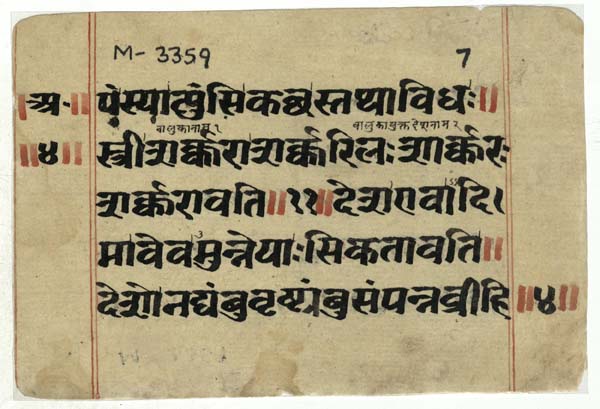 M- 3359 7
।अ॰। पंस्यात्पुंसिकच्छस्तथाविधः॥
वालुकानाम २ वालुकायुक्तदेशनाम २
॥४॥ स्त्रीशर्कराशर्करिलःशार्करः
शर्करावति॥११॥देशएवादि।
मावेवमुन्नेयाःसिकतावति॥
देशोनद्यंबुवृष्ट्यंबुसंपन्नव्रीहि ॥४॥